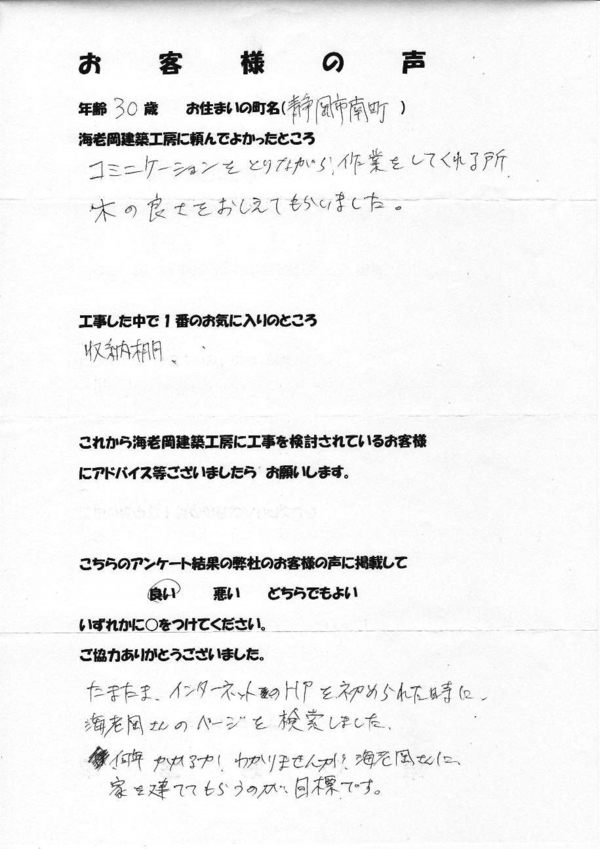 お客様の声
年齢 30 歳 お住まいの町名(静岡市南町 )
海老岡建築工房に頼んでよかったところ
コミニケーションをとりながら、作業をしてくれる所
木の良さをおしえてもらいました。
工事した中で1番のお気に入りのところ
収納棚、
これから海老岡建築工房に工事を検討されているお客様
にアドバイス等ございましたら お願いします。
こちらのアンケート結果の弊社のお客様の声に掲載して
良い 悪い どちらでもよい
いずれかに○をつけてください。
ご協力ありがとうございました。
たまたま、インターネットのHPを初められた時に、
海老岡さんのページを検索しました、
何年かかるか!わかりませんが?海老岡さんに、
家を建ててもらうのが、目標です。